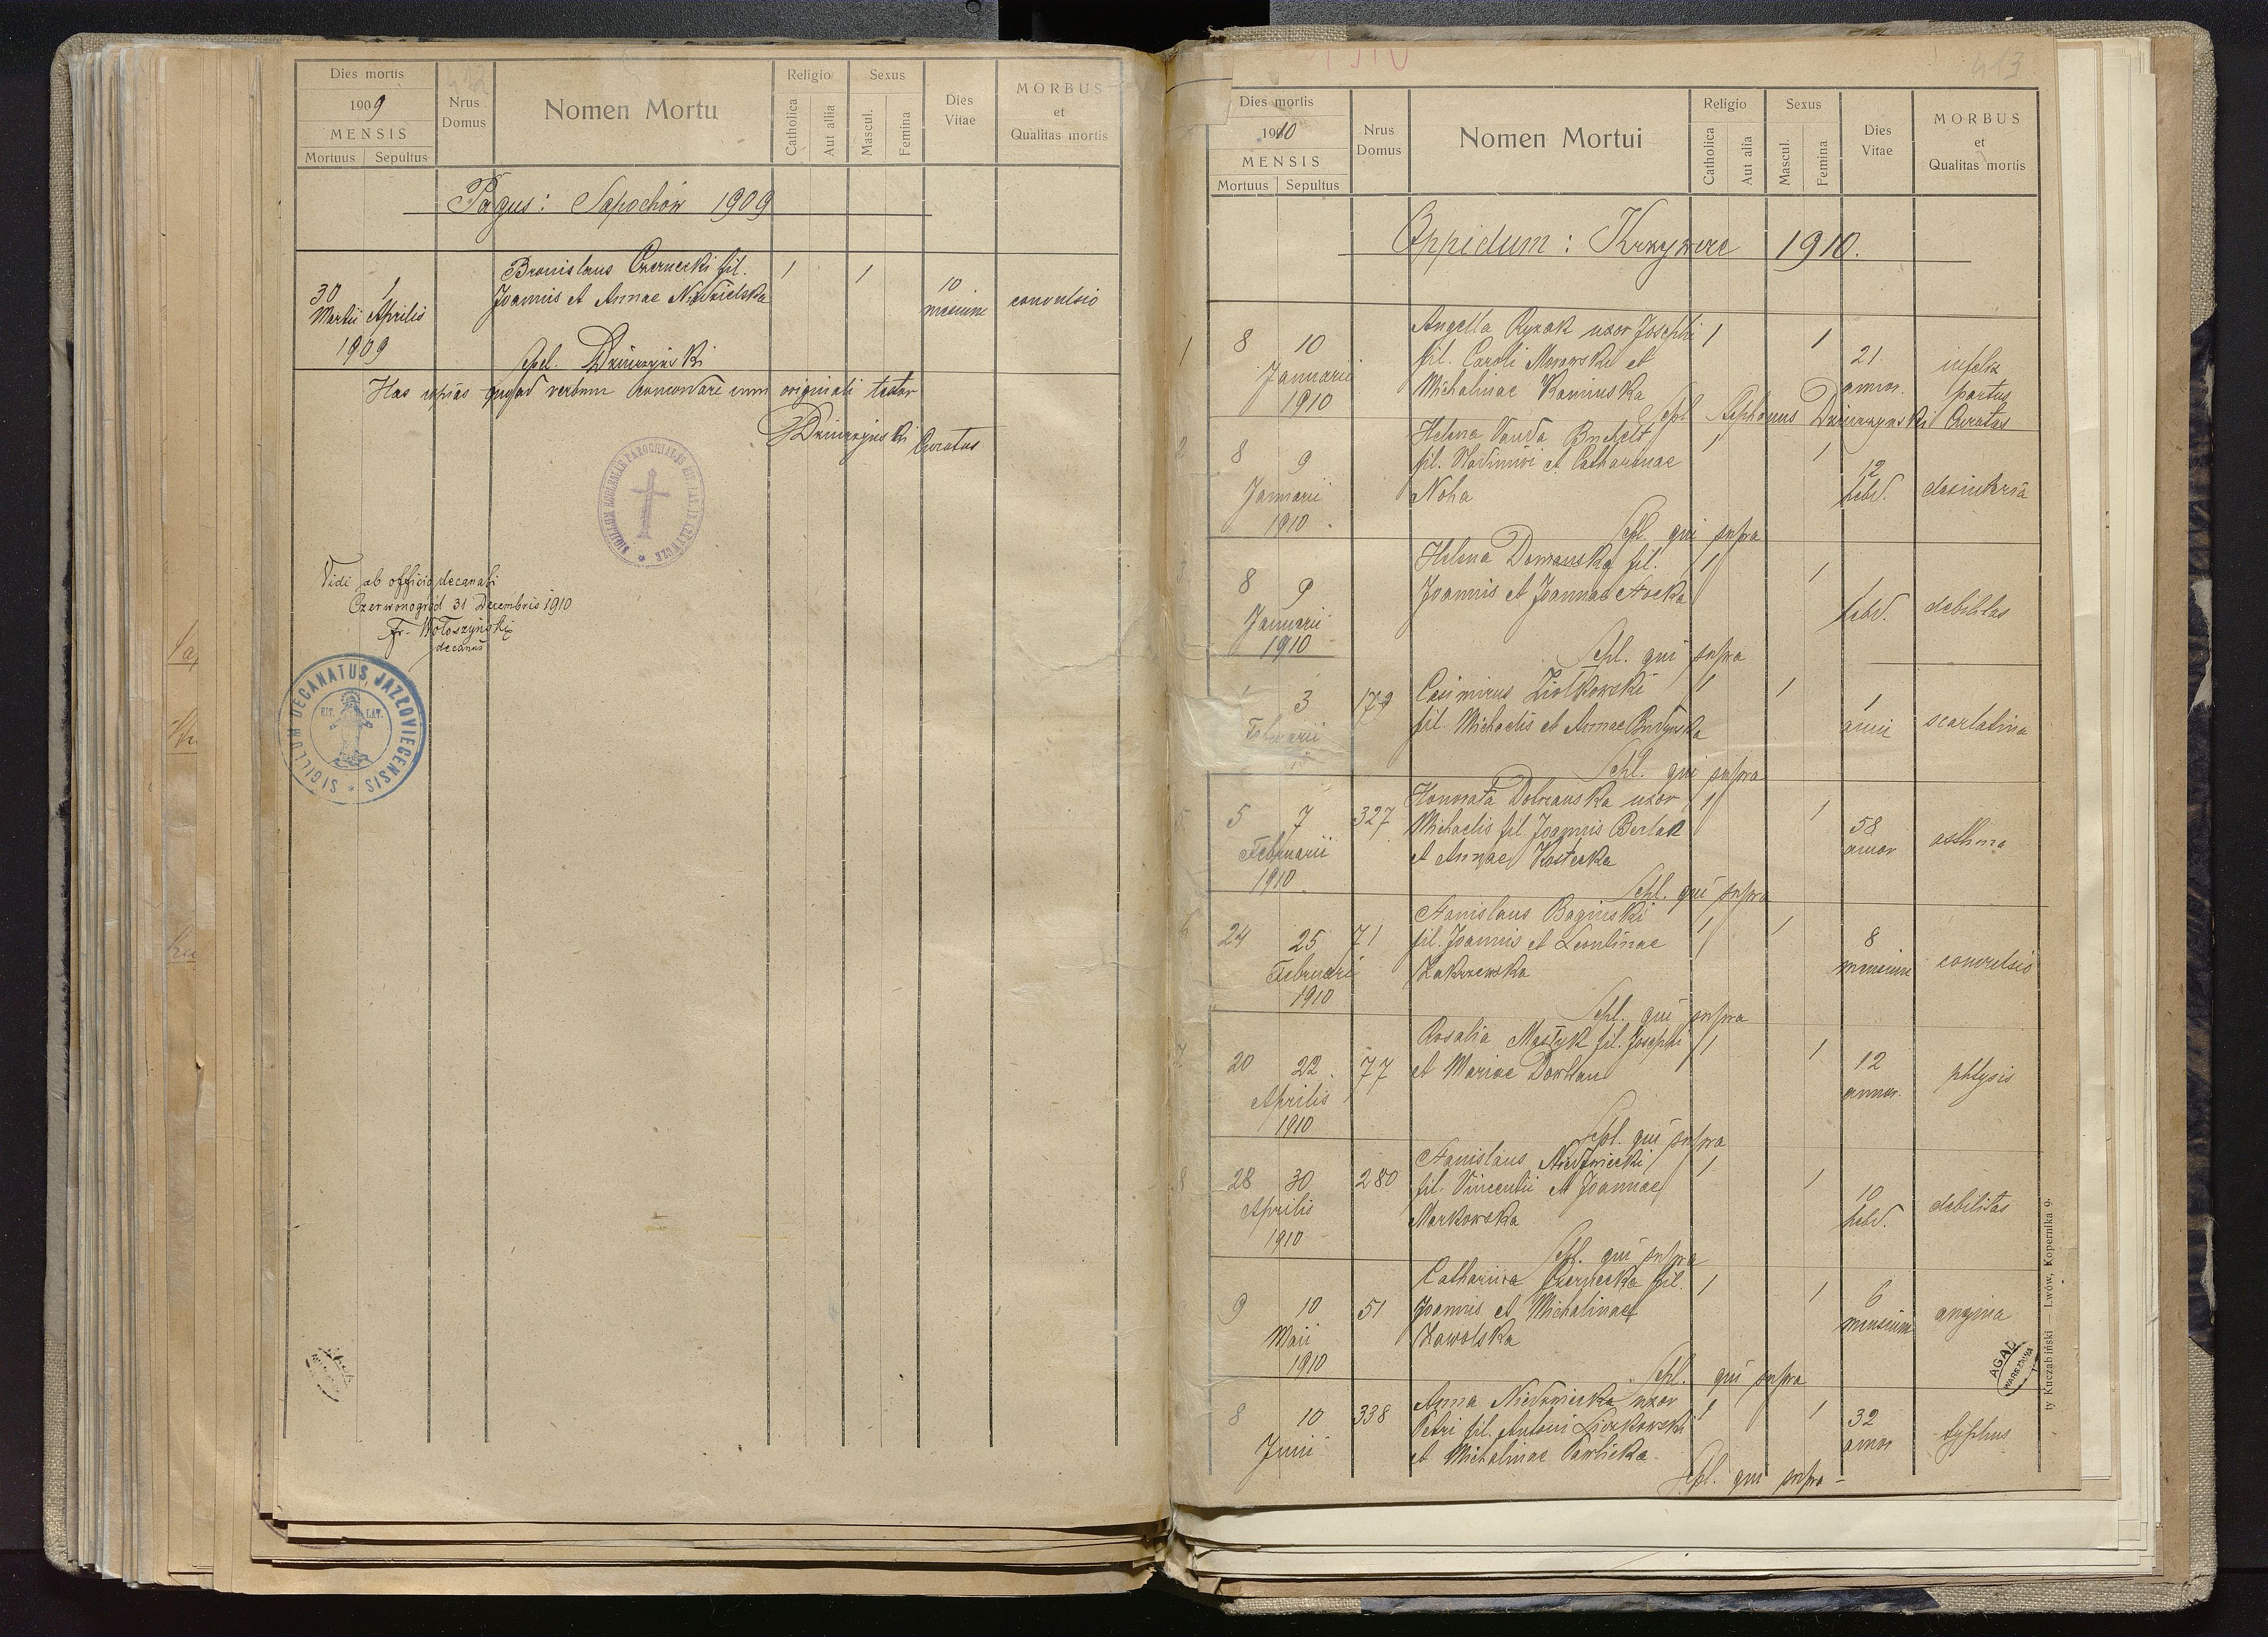 Dies mortis
1909
MENSIS
Mortuus Sepultus
Nrus Domus
Nomen Mortu
Religio
Catholica
Aut alia
Sexus
Mascul.
Femina
Dies Vitae
MORBUS
et
Qualitas mortis
Pagus: Sapochów 1909
30 1
Martii Aprilis
1909
Bronislaus Czernecki fil.
Joannis et Annae Niedzielska
1 1
10 mensium
convulsio
Sepel. Dziurzyński
Has copias quoad verbum concordare cum originali testor
Dziurzyński Curatus
Vidi ab officio decanali
Czerwonogród 31 Decembris 1910
Fr. Wołoszyński
decanus
SIGILLUM DECANATUS JAZŁOVIECENSIS
RIT. LAT.
1910
413
Dies mortis
1910
MENSIS
Mortuus Sepultus
Nrus Domus
Nomen Mortui
Religio
Catholica
Aut alia
Sexus
Mascul.
Femina
Dies Vitae
MORBUS
et
Qualitas mortis
Oppidum: Krzywcze 1910.
1 8 10
Januarii
1910
Angella Ryzak uxor Josephi
fil. Caroli Morowski et
Michalinae Kaminska
1 1
21 annor.
infelix partus
Sepl Stephanus Dziurzyński Curatus
2 8 9
Januarii
1910
Helena Vanda
fil. et Catharinae
Noha
1 1
12 hebd.
desinteria
Sepl. qui supra
3 8 9
Januarii
1910
Helena Domanska fil.
Joannis et Joannae
1 1
1 hebd.
debilitas
Sepl. qui supra
1 3
Februarii
179
Casimirus Ziołkowski
fil. Michaelis et Annae Budynska
1 1
1 anni
scarlatina
Sepl. qui supra
5 5 7
Februarii
1910
327
Honorata Dobrzanska uxor
Michaelis fil Joannis
et Annae Kostecka
1 1
58 annor
asthma
Sepl. qui supra
6 24 25
Februarii
1910
71
Stanislaus Baginski
fil. Joannis et Leontinae
Zakrzewska
1 1
8 mensium
convulsio
Sepl. qui supra
7 20 22
Aprilis
1910
77
Rosalia Mastyk fil. Josephi
et Mariae Dowhan
1 1
12 annor.
phtysis
Sepl. qui supra
8 28 30
Aprilis
1910
280
Stanislaus Niedzwiecki
fil. Vincentii et Joannae
Markowska
1 1
10 hebd.
debilitas
Sepl. qui supra
9 10
Maii
1910
51
Catharina Czernecka fil.
Joannis et Michalinae
Zawolska
1 1
6 mensium
angina
Sepl. qui supra
8 10
Junii
338
Anna Niedzwiecka uxor
Petri fil. Antoni
et Michalinae Pawlicka
1 1
32 annor
typhus
Sepl. qui supra
AGAD
WARSZAWA
ty Kuczabiński — Lwów, Kopernika 9.